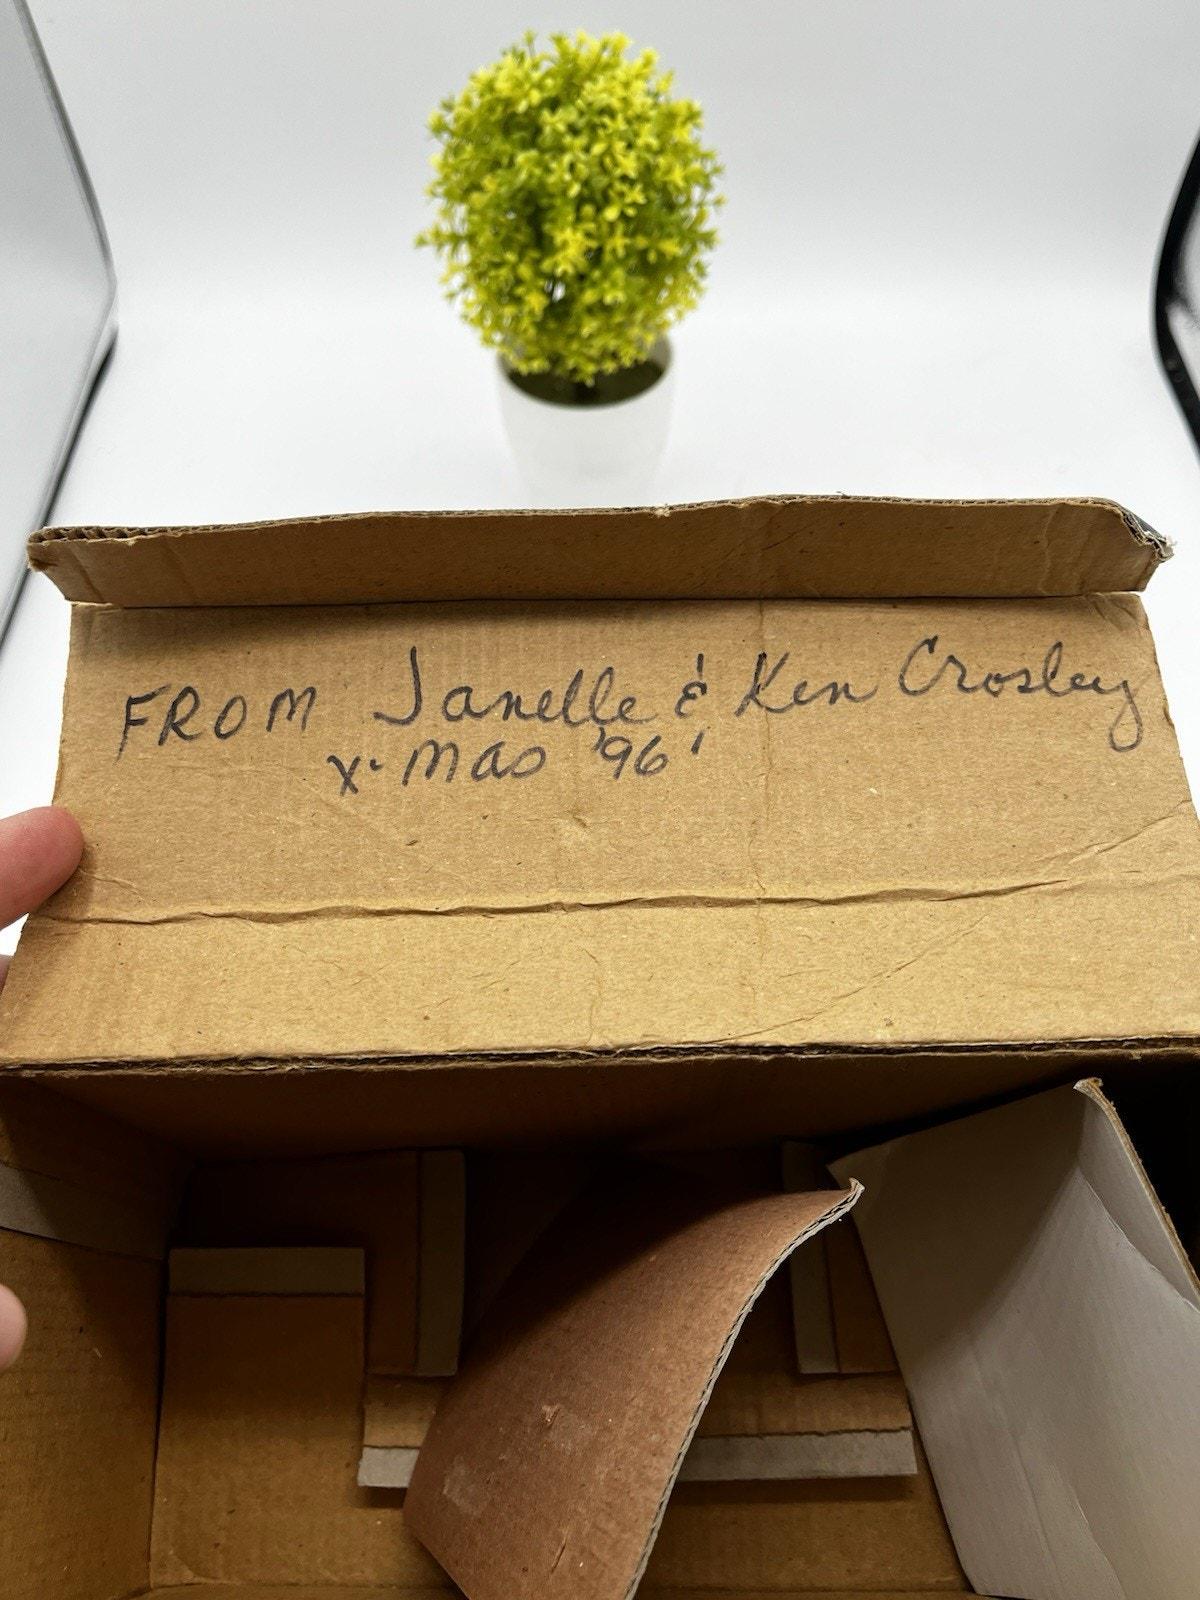 FROM Janelle & Ken Crosley
X-mas '96'